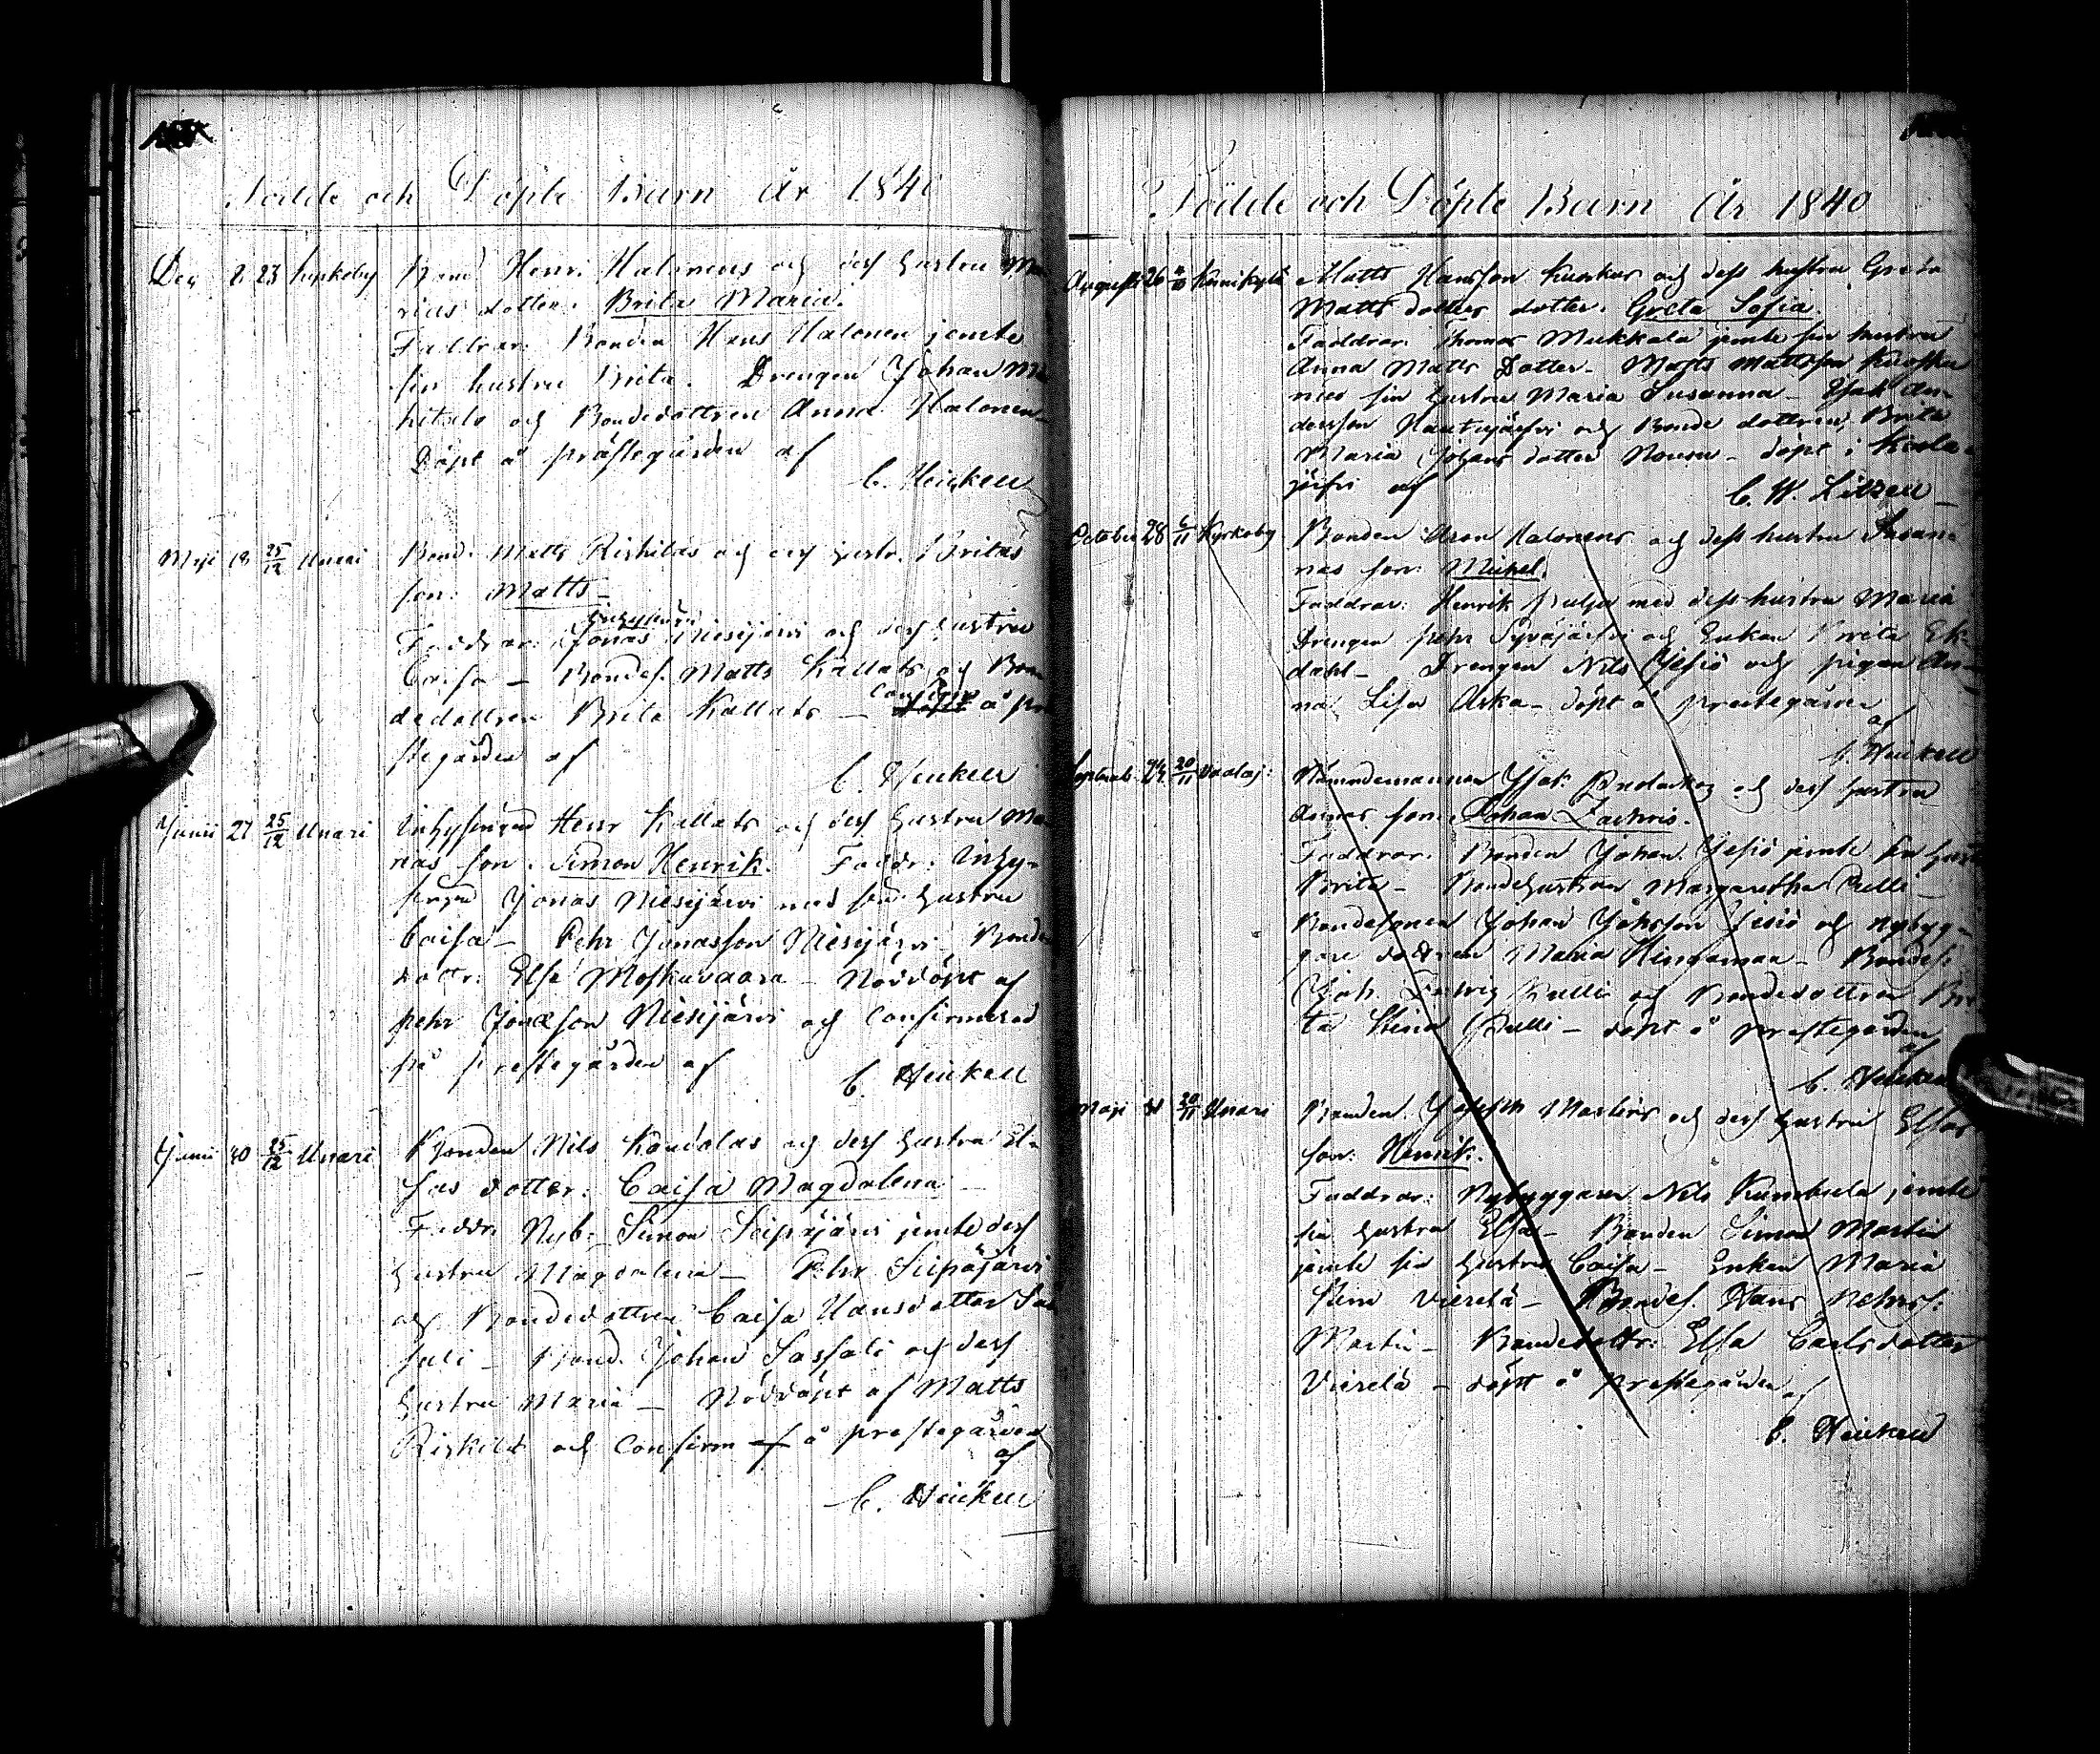 Födde och Döpte Barn År 1840
Dec 2 23 kyrkoby Bond. Henr. Halonens och dess hustru Ma
rias dotter: Brita Maria.
Faddrar. Bonden Hans Halonen jemte
sin hustru Brita. Drengen Johan
och Bondedottren Anna Halonen
Döpt å prästegården af
C. Heickell
Maji 18 25/12 Unari Bond. Matts Riskilas och dess hustr. Britas
son: Matts
Inhysing
Faddrar: Jonas Niesijärvi och dess hustru
Caisa – Bondes. Matts Kallats och Bon
dedottren Brita Kallats – Confirm å pre
stegården af
C. Heickell
Junii 27 25/12 Unari Inhysing Henr Kallats och dess hustru Ma
rias son. Simon Henrik. Faddr: Inhy-
sing Jonas Niesijärvi med sin hustru
Caisa – Pehr Jonasson Niesijärvi – Bonde
dottr: Elsa Moskuvaara – Nöddöpt af
pehr Jonasson Niesijärvi och Confirmerad
på prestegården af
C. Heickell
Junii 25/12 Unari Bonden Nils Kandolas och dess hustru El-
sas dotter: Caisa Magdalena
Faddr. Nyb: Simon Seipäjärvi jemte dess
hustru Magdalena – Pehr Seipäjärvi
och Bondedottren Caisa Hansdotter Sas
sali – Bond. Johan Sassali och dess
hustru Maria – Nöddöpt af Matts
Riskilä och Confirm å prestegården
af
C. Heickell
Födde och Döpte Barn År 1840
Augusti 26 Matts Hansson och dess hustru Greta
Matts dotters dotter. Greta Sofia.
Faddrar. Thomas Mukkala jemte sin hustru
Anna Matts Dotter – Matts Mattsson
med sin hustru Maria Susanna – Isak An-
dersson Hautajärvi och Bonde dottren Brita
Maria Johans dotter – döpt i Kuola
järfvi af C. W. Litzell –
October 28 6/11 Kyrkoby Bonden Aron Halonens och dess hustru Susan-
nas son: Michel.
Faddrar: Henrik Pulju med dess hustru Maria
Drengen pehr Syväjärfvi och Enkan Brita Ek-
dahl – Drengen Nils Jesiö och pigan An-
na Lisa Aska – döpt å prestegården
af
C. Heickell
20/11 Nämndemannen Isak och dess hustru
Annas son: Johan Zachris.
Faddrar. Bonden Johan Jesiö jemte sin hustru
Brita – Bondehustrun Margaretha Pulli –
Bondesonen Johan Johsson Jesiö och nybyg-
gare dottren Maria Hinganmaa – Bondes:
Joh. Ludvig Pulli och Bondedottren Bri
ta Stina Pulli – döpt å prestegården
af
C. Heickell
Maji 20/11 Unari Bonden Joseph Martins och dess hustru Elsas
son: Henrik.
Faddrar: Nybyggaren Nils jemte
sin hustru Elsa – Bonden Simon Martin
jemte sin hustru Caisa – Enkan Maria
Stina Vierelä – Bondes. Hans Pehrs:
Martin – Bondedottr: Elsa Carlsdotter
Vierelä – döpt å prestegården af
C. Heickell